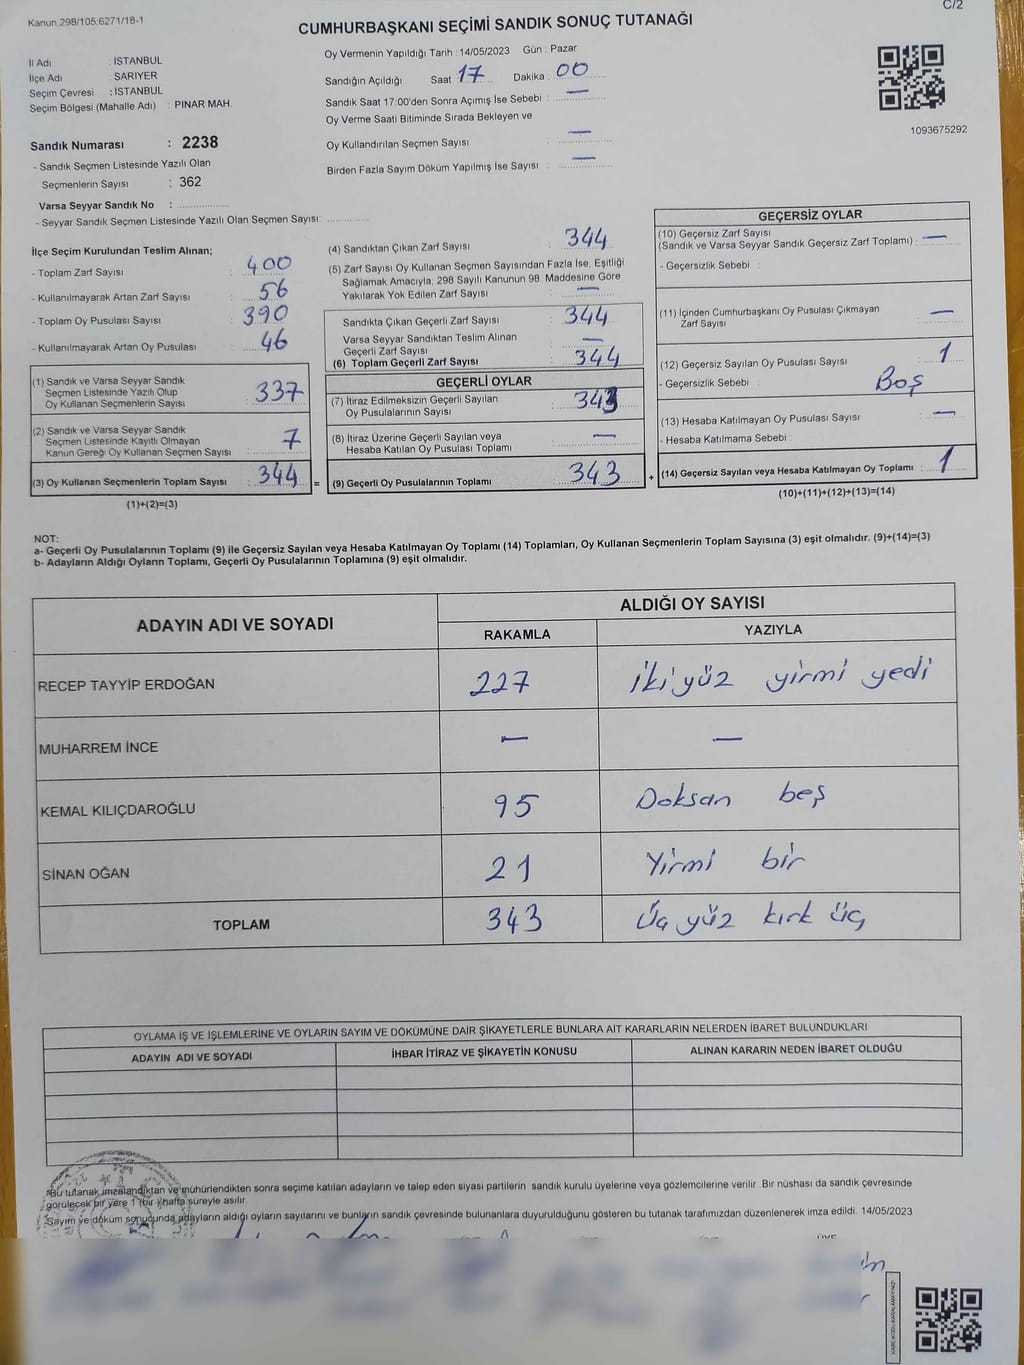 Kanun,298/105;6271/18-1
C/2
CUMHURBAŞKANI SEÇİMİ SANDIK SONUÇ TUTANAĞI
İl Adı : İSTANBUL
İlçe Adı : SARIYER
Seçim Çevresi : İSTANBUL
Seçim Bölgesi (Mahalle Adı) : PINAR MAH.
Sandık Numarası : 2238
- Sandık Seçmen Listesinde Yazılı Olan
Seçmenlerin Sayısı : 362
Varsa Seyyar Sandık No :
- Seyyar Sandık Seçmen Listesinde Yazılı Olan Seçmen Sayısı:
Oy Vermenin Yapıldığı Tarih : 14/05/2023 Gün : Pazar
Sandığın Açıldığı Saat 17 Dakika : 00
Sandık Saat 17:00'den Sonra Açımış İse Sebebi : —
Oy Verme Saati Bitiminde Sırada Bekleyen ve
Oy Kullandırılan Seçmen Sayısı : —
Birden Fazla Sayım Döküm Yapılmış İse Sayısı : —
1093675292
İlçe Seçim Kurulundan Teslim Alınan;
- Toplam Zarf Sayısı : 400
- Kullanılmayarak Artan Zarf Sayısı : 56
- Toplam Oy Pusulası Sayısı : 390
- Kullanılmayarak Artan Oy Pusulası : 46
(1) Sandık ve Varsa Seyyar Sandık
Seçmen Listesinde Yazılı Olup
Oy Kullanan Seçmenlerin Sayısı : 337
(2) Sandık ve Varsa Seyyar Sandık
Seçmen Listesinde Kayıtlı Olmayan
Kanun Gereği Oy Kullanan Seçmen Sayısı : 7
(3) Oy Kullanan Seçmenlerin Toplam Sayısı : 344 =
(1)+(2)=(3)
(4) Sandıktan Çıkan Zarf Sayısı : 344
(5) Zarf Sayısı Oy Kullanan Seçmen Sayısından Fazla İse, Eşitliği
Sağlamak Amacıyla, 298 Sayılı Kanunun 98. Maddesine Göre
Yakılarak Yok Edilen Zarf Sayısı : —
Sandıkta Çıkan Geçerli Zarf Sayısı : 344
Varsa Seyyar Sandıktan Teslim Alınan
Geçerli Zarf Sayısı : —
(6) Toplam Geçerli Zarf Sayısı : 344
GEÇERLİ OYLAR
(7) İtiraz Edilmeksizin Geçerli Sayılan
Oy Pusulalarının Sayısı : 343
(8) İtiraz Üzerine Geçerli Sayılan veya
Hesaba Katılan Oy Pusulası Toplamı : —
(9) Geçerli Oy Pusulalarının Toplamı : 343 +
GEÇERSİZ OYLAR
(10) Geçersiz Zarf Sayısı
(Sandık ve Varsa Seyyar Sandık Geçersiz Zarf Toplamı) : —
- Geçersizlik Sebebi :
(11) İçinden Cumhurbaşkanı Oy Pusulası Çıkmayan
Zarf Sayısı : —
(12) Geçersiz Sayılan Oy Pusulası Sayısı : 1
- Geçersizlik Sebebi : Boş
(13) Hesaba Katılmayan Oy Pusulası Sayısı : —
- Hesaba Katılmama Sebebi :
(14) Geçersiz Sayılan veya Hesaba Katılmayan Oy Toplamı : 1
(10)+(11)+(12)+(13)=(14)
NOT:
a- Geçerli Oy Pusulalarının Toplamı (9) ile Geçersiz Sayılan veya Hesaba Katılmayan Oy Toplamı (14) Toplamları, Oy Kullanan Seçmenlerin Toplam Sayısına (3) eşit olmalıdır. (9)+(14)=(3)
b- Adayların Aldığı Oyların Toplamı, Geçerli Oy Pusulalarının Toplamına (9) eşit olmalıdır.
ADAYIN ADI VE SOYADI ALDIĞI OY SAYISI
RAKAMLA YAZIYLA
RECEP TAYYİP ERDOĞAN 227 İki yüz yirmi yedi
MUHARREM İNCE — —
KEMAL KILIÇDAROĞLU 95 Doksan beş
SİNAN OĞAN 21 Yirmi bir
TOPLAM 343 Üç yüz kırk üç
OYLAMA İŞ VE İŞLEMLERİNE VE OYLARIN SAYIM VE DÖKÜMÜNE DAİR ŞİKAYETLERLE BUNLARA AİT KARARLARIN NELERDEN İBARET BULUNDUKLARI
ADAYIN ADI VE SOYADI İHBAR İTİRAZ VE ŞİKAYETİN KONUSU ALINAN KARARIN NEDEN İBARET OLDUĞU
*Bu tutanak imzalandıktan ve mühürlendikten sonra seçime katılan adayların ve talep eden siyasi partilerin sandık kurulu üyelerine veya gözlemcilerine verilir .Bir nüshası da sandık çevresinde
görülecek bir yere 1 (bir ) hafta süreyle asılır.
Sayım ve döküm sonucunda adayların aldığı oyların sayılarını ve bunların sandık çevresinde bulunanlara duyurulduğunu gösteren bu tutanak tarafımızdan düzenlenerek imza edildi. 14/05/2023
ÜYE
KARE KODU KARALAMAYINIZ!